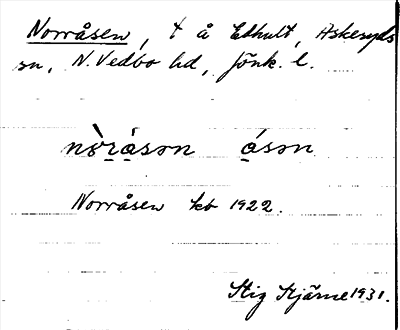 Norråsen, t å Edhult, Askeryds
sn, N. Vedbo hd, Jönk. l.
nò̀ràsən ásən
Norråsen kb 1922.
Stig Stjärne 1931.